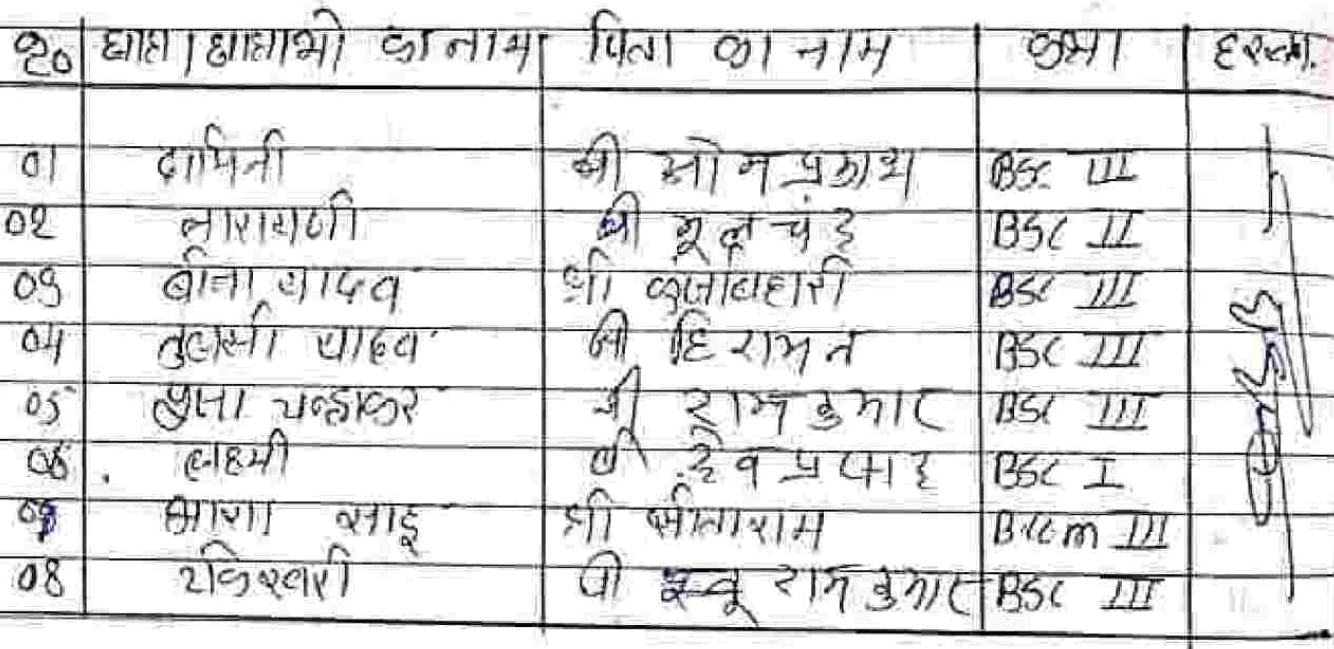 क्र० छात्र/छात्राओं का नाम पिता का नाम कक्षा हस्ता.
01 दामिनी श्री सोम प्रकाश BSc III
02 नारायणी श्री मूलचंद BSC II
03 बीना यादव श्री कुंजबिहारी BSC III
04 तुलसी यादव श्री हिरामन BSC III
05 चन्द्राकर श्री राम कुमार BSC III
06 लक्ष्मी श्री देव प्रसाद BSC I
07 आशा साहू श्री सीताराम B.com III
08 श्री राम कुमार BSC III